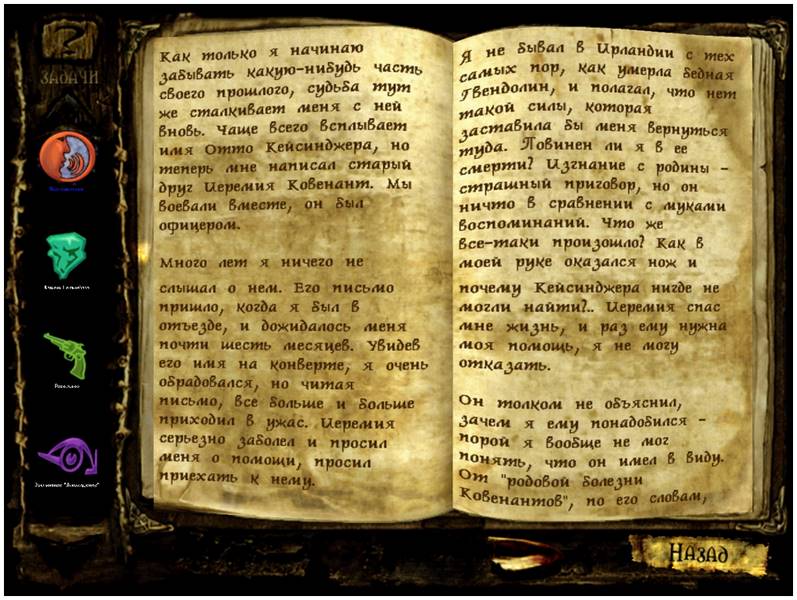 ЗАДАЧИ
Как только я начинаю
забывать какую-нибудь часть
своего прошлого, судьба тут
же сталкивает меня с ней
вновь. Чаще всего всплывает
имя Отто Кейсинджера, но
теперь мне написал старый
друг Иеремия Ковенант. Мы
воевали вместе, он был
офицером.
Много лет я ничего не
слышал о нем. Его письмо
пришло, когда я был в
отъезде, и дожидалось меня
почти шесть месяцев. Увидев
его имя на конверте, я очень
обрадовался, но читая
письмо, все больше и больше
приходил в ужас. Иеремия
серьезно заболел и просил
меня о помощи, просил
приехать к нему.
Я не бывал в Ирландии с тех
самых пор, как умерла бедная
Гвендолин, и полагал, что нет
такой силы, которая
заставила бы меня вернуться
туда. Повинен ли я в ее
смерти? Изгнание с родины -
страшный приговор, но он
ничто в сравнении с муками
воспоминаний. Что же
все-таки произошло? Как в
моей руке оказался нож и
почему Кейсинджера нигде не
могли найти?.. Иеремия спас
мне жизнь, и раз ему нужна
моя помощь, я не могу
отказать.
Он толком не объяснил,
зачем я ему понадобился -
порой я вообще не мог
понять, что он имел в виду.
От "родовой болезни
Ковенантов", по его словам,
Назад